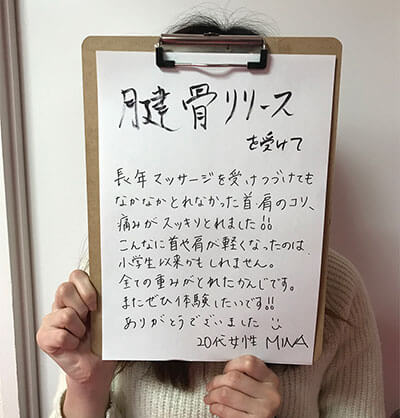 腱骨リリース
を受けて
長年マッサージを受けつづけても
なかなかとれなかった首・肩のコリ、
痛みがスッキリとれました!!
こんなに首や肩が軽くなったのは、
小学生以来かもしれません。
全ての重みがとれたかんじです。
またぜひ体験したいです!!
ありがとうございました
20代女性 MINA